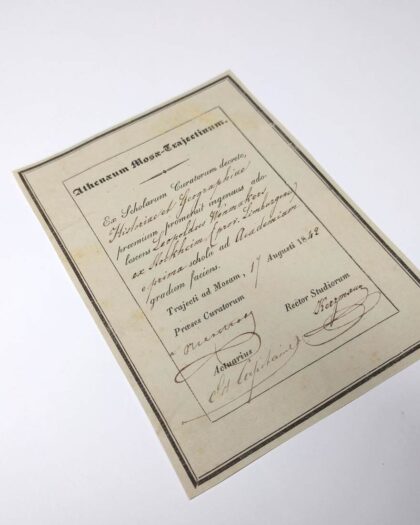 Athenæum Mosæ-Trajectinum.
Ex Scholarum Curatorum decreto,
Historiae et Geographiae
præmium promeruit ingenuus ado-
lescens Leopoldus
ex Stockheim (prov. Limburgens)
e prima schola ad Academiam
gradum faciens.
Trajecti ad Mosam, 17 Augusti 1842
Præses Curatorum Rector Studiorum
Actuarius